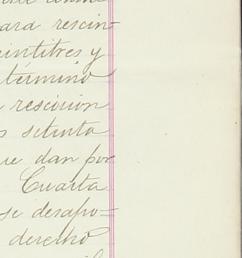 para rescin-
veintitres y
término
rescicion
setenta
que dan por
Cuarta
se desapo-
derecho